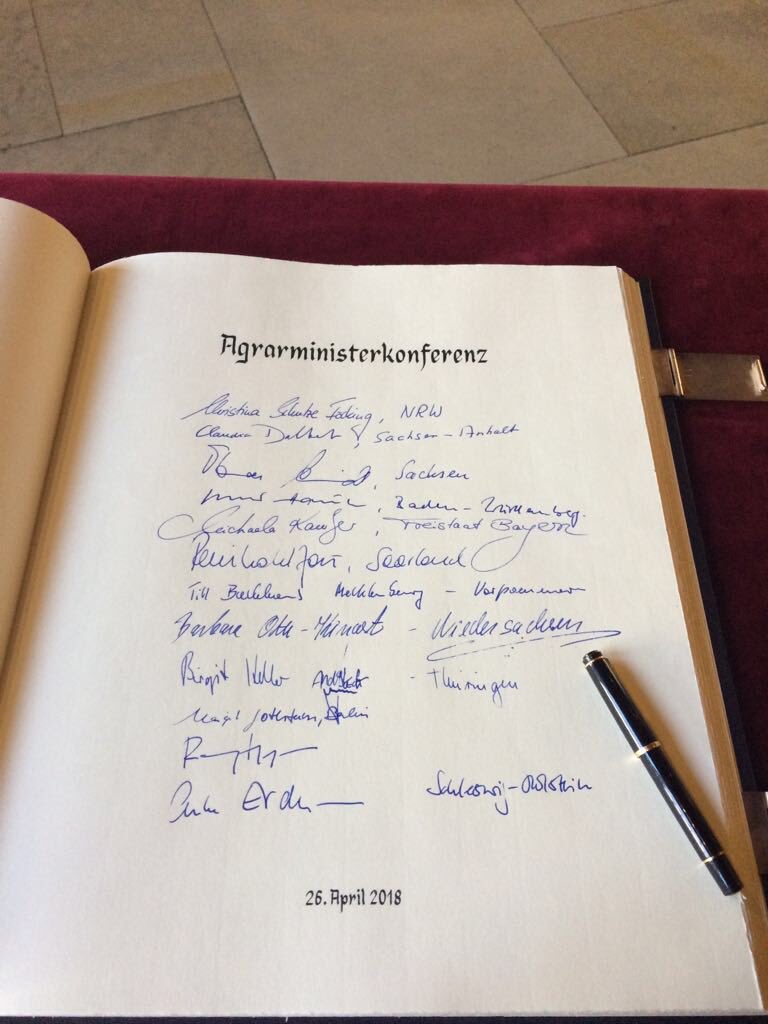 Agrarministerkonferenz
Christina Schulze Föcking, NRW
Claudia Dalbert, Sachsen-Anhalt
Sachsen
, Baden-Württemberg
Michaela Kaniber, Freistaat Bayern
Reinhold Jost, Saarland
Till Backhaus Mecklenburg - Vorpommern
Barbara Otte-Kinast - Niedersachsen
Birgit Keller - Thüringen
Berlin
Erdm
Schleswig-Holstein
26. April 2018